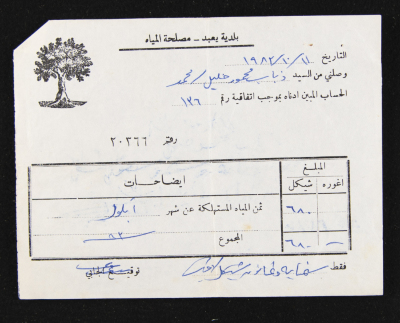 بلدية يعبد - مصلحة المياه
التاريخ ١٩٨٢/١٠/١١
وصلني من السيد ذياب محمود خليل / محمد
الحساب المبين ادناه بموجب اتفاقية رقم ١٣٦
رقم ٢٠٣٦٦
المبلغ
اغوره شيكل ايضاحات
٦٨٠ ثمن المياه المستهلكة عن شهر أيلول
— ٦٨٠ المجموع ٨٢
فقط ستماية وثمانون شيكل لاغير توقيع الجابي